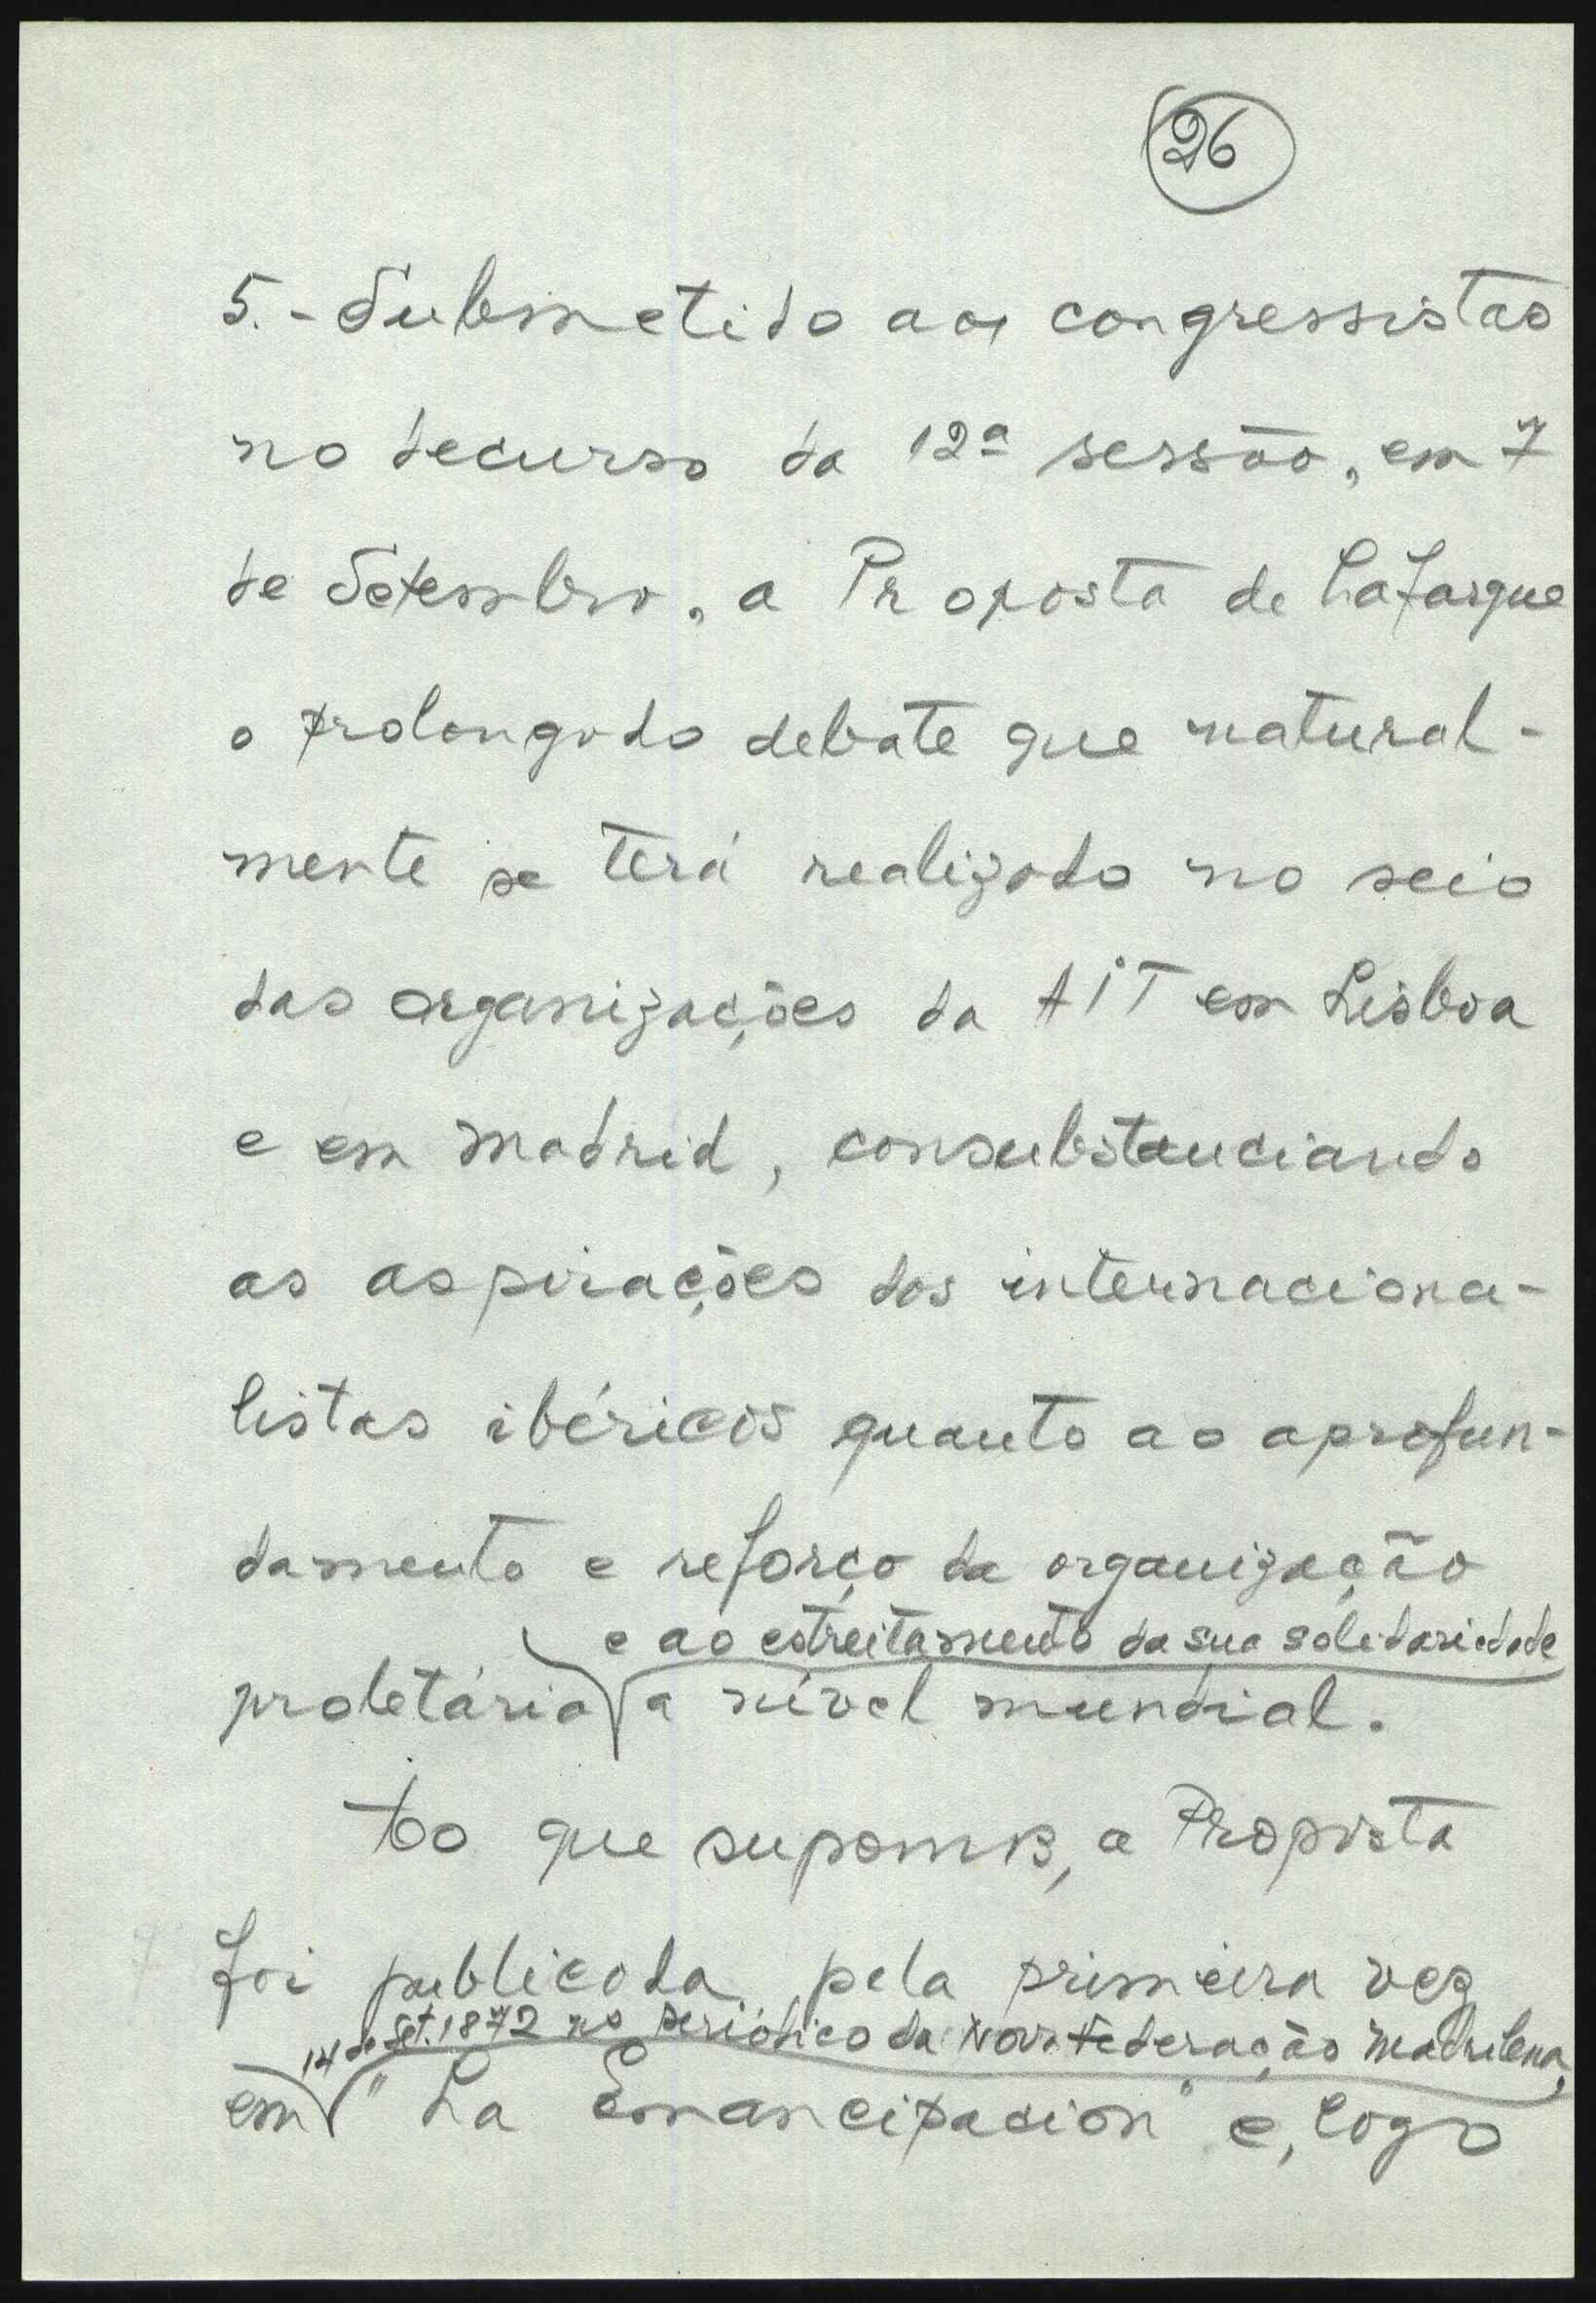 26
5. - Submetido aos congressistas
no decurso da 12ª sessão, em 7
de Setembro, a Proposta de Lafargue
o prolongado debate que natural-
mente se terá realizado no seio
das organizações da AIT em Lisboa
e em Madrid, consubstanciando
as aspirações dos internaciona-
listas ibéricos quanto ao aprofun-
damento e reforço da organização
e ao estreitamento da sua solidariedade
proletária a nível mundial.
Ao que supomos, a Proposta
foi publicada pela primeira vez
14 de Set. 1872 no periódico da Nova Federação Madrilena,
em "La Emancipacion" e, logo